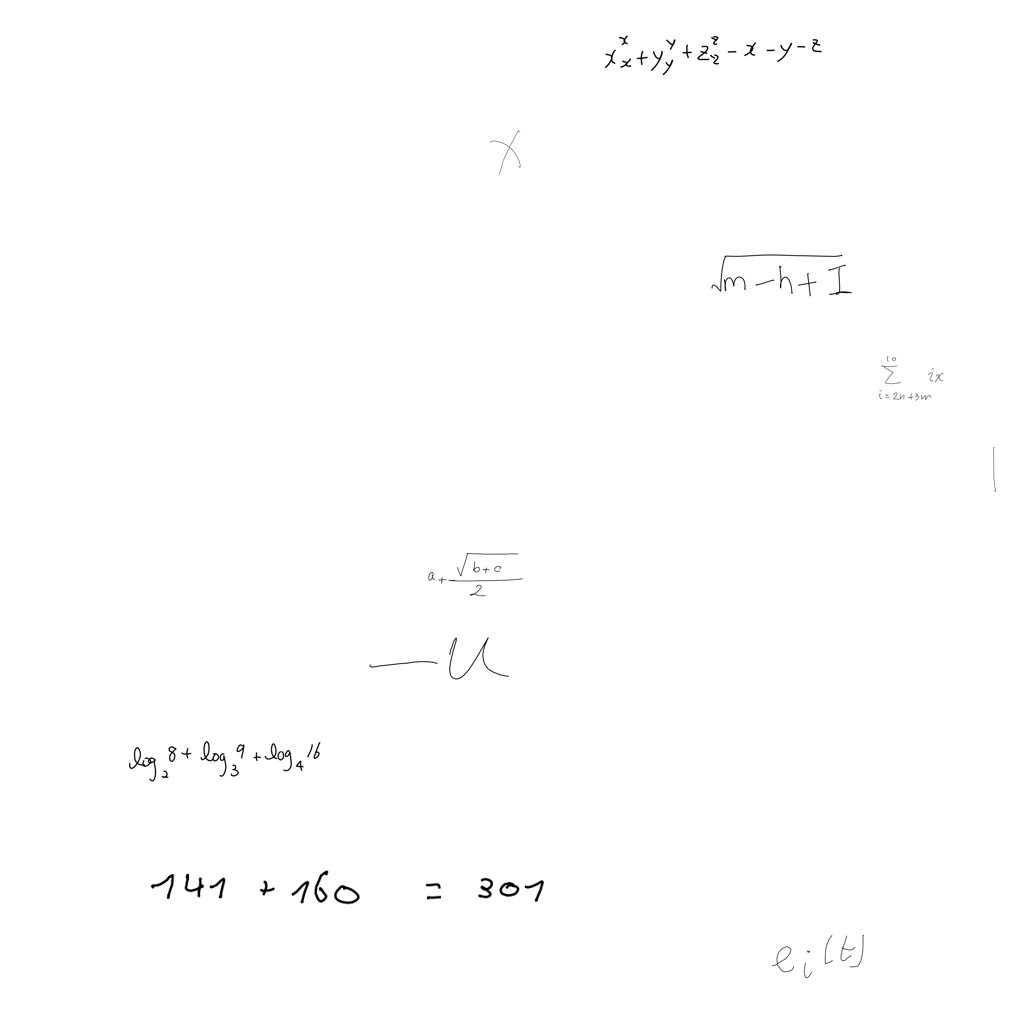 x_x^x + y_y^y + z_z^z - x - y - z
x
√(m - h + I)
∑_{i=2n+3m}^{10} ix
|
a + √(b+c) / 2
- u
log_2 8 + log_3 9 + log_4 16
141 + 160 = 301
e_i(t)